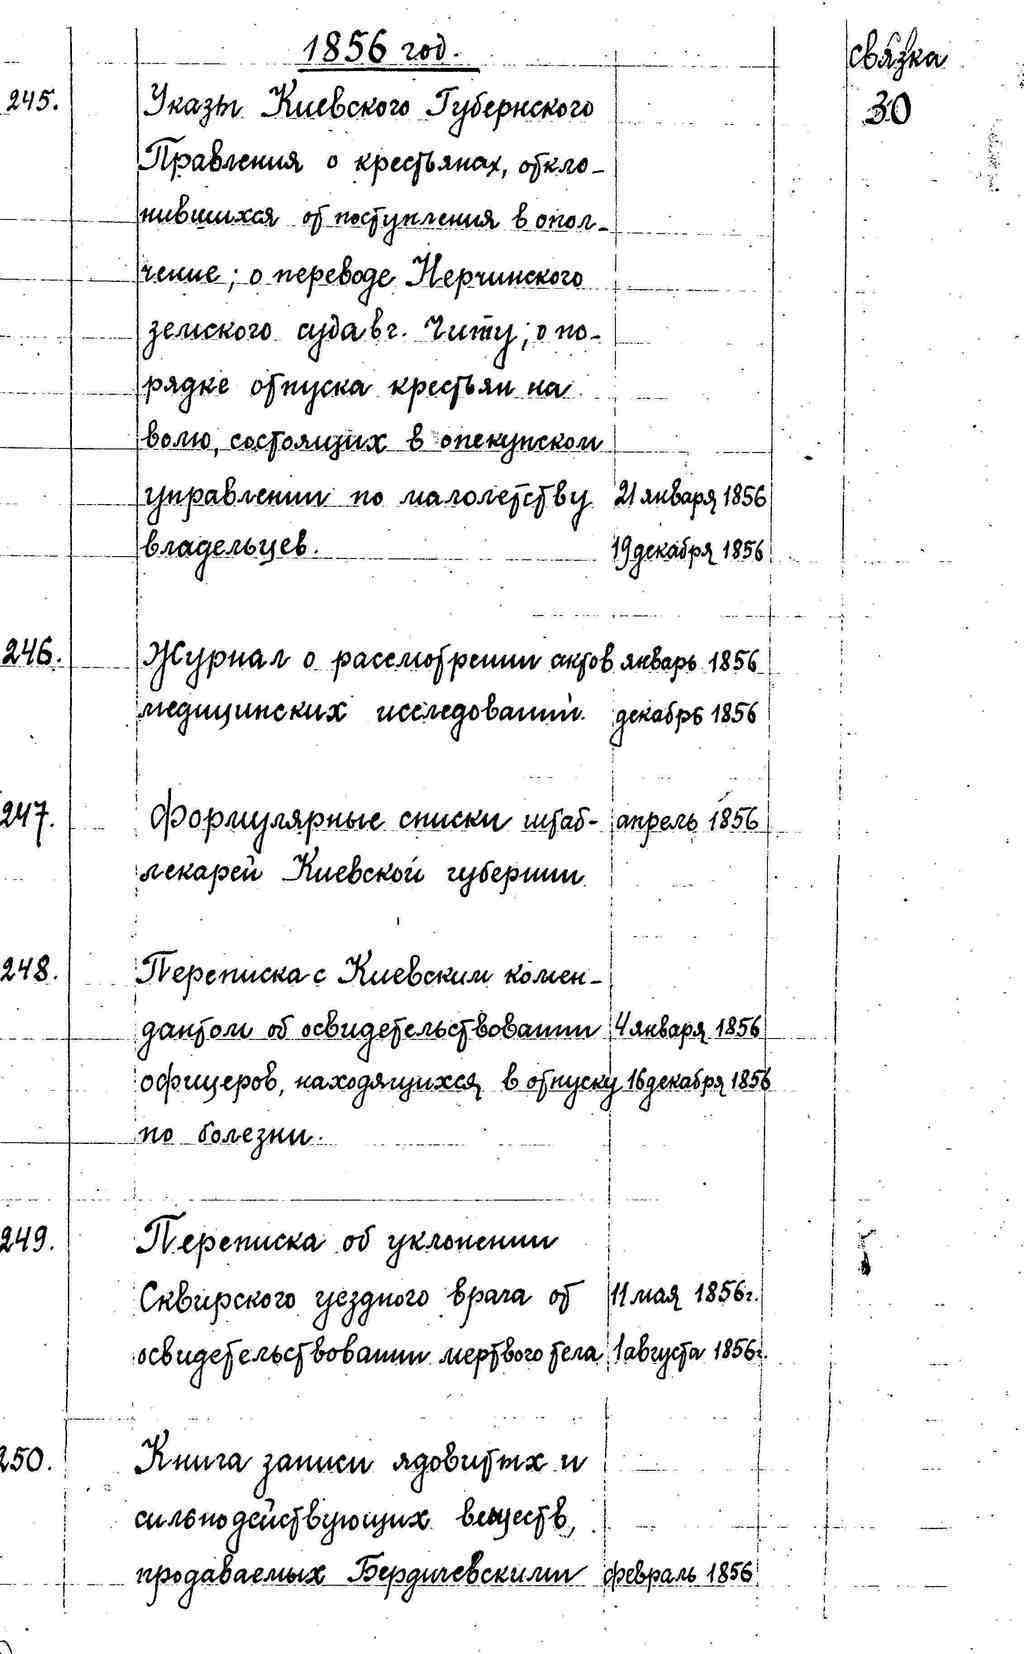 1856 год. связка
245. Указы Киевского Губернского 30
Правления о крестьянах, откло-
нившихся от поступления в опол-
чение; о переводе Нерчинского
земского суда в г. Читу; о по-
рядке отпуска крестьян на
волю, состоящих в опекунском
управлении по малолетству 21 января 1856
владельцев. 19 декабря 1856
246. Журнал о рассмотрении актов январь 1856
медицинских исследований. декабрь 1856
247. Формулярные списки штаб- апрель 1856
лекарей Киевской губернии
248. Переписка с Киевским комен-
дантом об освидетельствовании 4 января 1856
офицеров, находящихся в отпуску 16 декабря 1856
по болезни.
249. Переписка об уклонении
Сквирского уездного врача от 11 мая 1856г.
освидетельствовании мертвого тела 1 августа 1856г.
250. Книга записи ядовитых и
сильнодействующих веществ,
продаваемых Бердичевскими февраль 1856